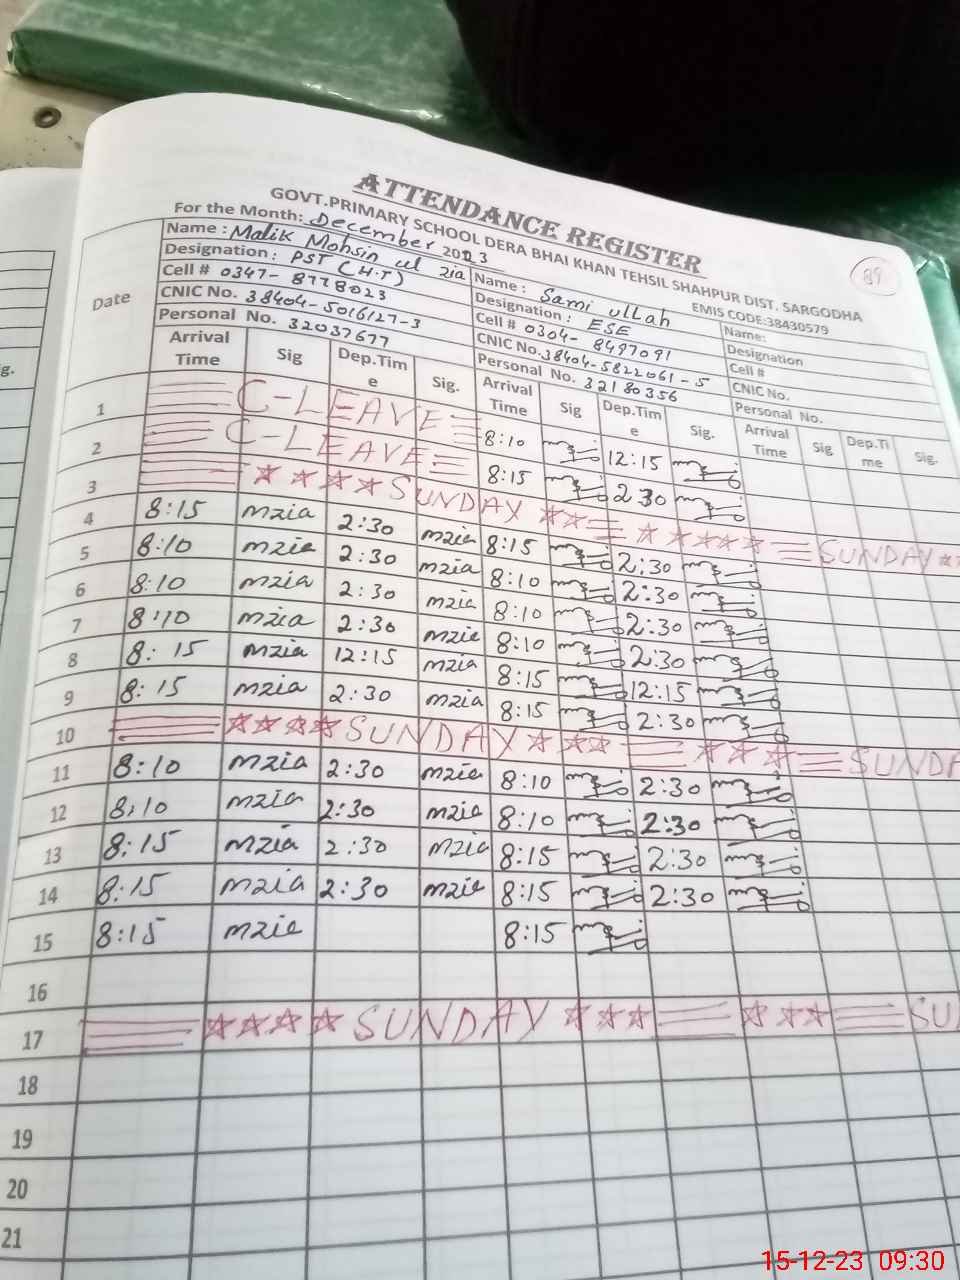 ATTENDANCE REGISTER
GOVT.PRIMARY SCHOOL DERA BHAI KHAN TEHSIL SHAHPUR DIST. SARGODHA
89
For the Month: December 2023
EMIS CODE:38430579
Name : Malik Mohsin ul zia Name : Sami ullah Name:
Designation : PST (H.T) Designation : ESE Designation
Cell # 0347- 8778023 Cell # 0304- 8497091 Cell #
CNIC No. 38404-5016127-3 CNIC No.38404-5822061-5 CNIC No.
Personal No. 32037677 Personal No. 32180356 Personal No.
Date Arrival Time Sig Dep.Time Sig. Arrival Time Sig Dep.Time Sig. Arrival Time Sig Dep.Time Sig.
1 C-LEAVE 8:10 12:15
2 C-LEAVE 8:15 2 30
3 SUNDAY SUNDAY
4 8:15 mzia 2:30 mzia 8:15 2:30
5 8:10 mzia 2:30 mzia 8:10 2:30
6 8:10 mzia 2:30 mzia 8:10 2:30
7 8:10 mzia 2:30 mzia 8:10 2:30
8 8:15 mzia 12:15 mzia 8:15 12:15
9 8:15 mzia 2:30 mzia 8:15 2:30
10 SUNDAY SUNDA
11 8:10 mzia 2:30 mzia 8:10 2:30
12 8:10 mzia 2:30 mzia 8:10 2:30
13 8:15 mzia 2:30 mzia 8:15 2:30
14 8:15 mzia 2:30 mzia 8:15 2:30
15 8:15 mzia 8:15
16
17 SUNDAY SU
18
19
20
21
g.
15-12-23 09:30